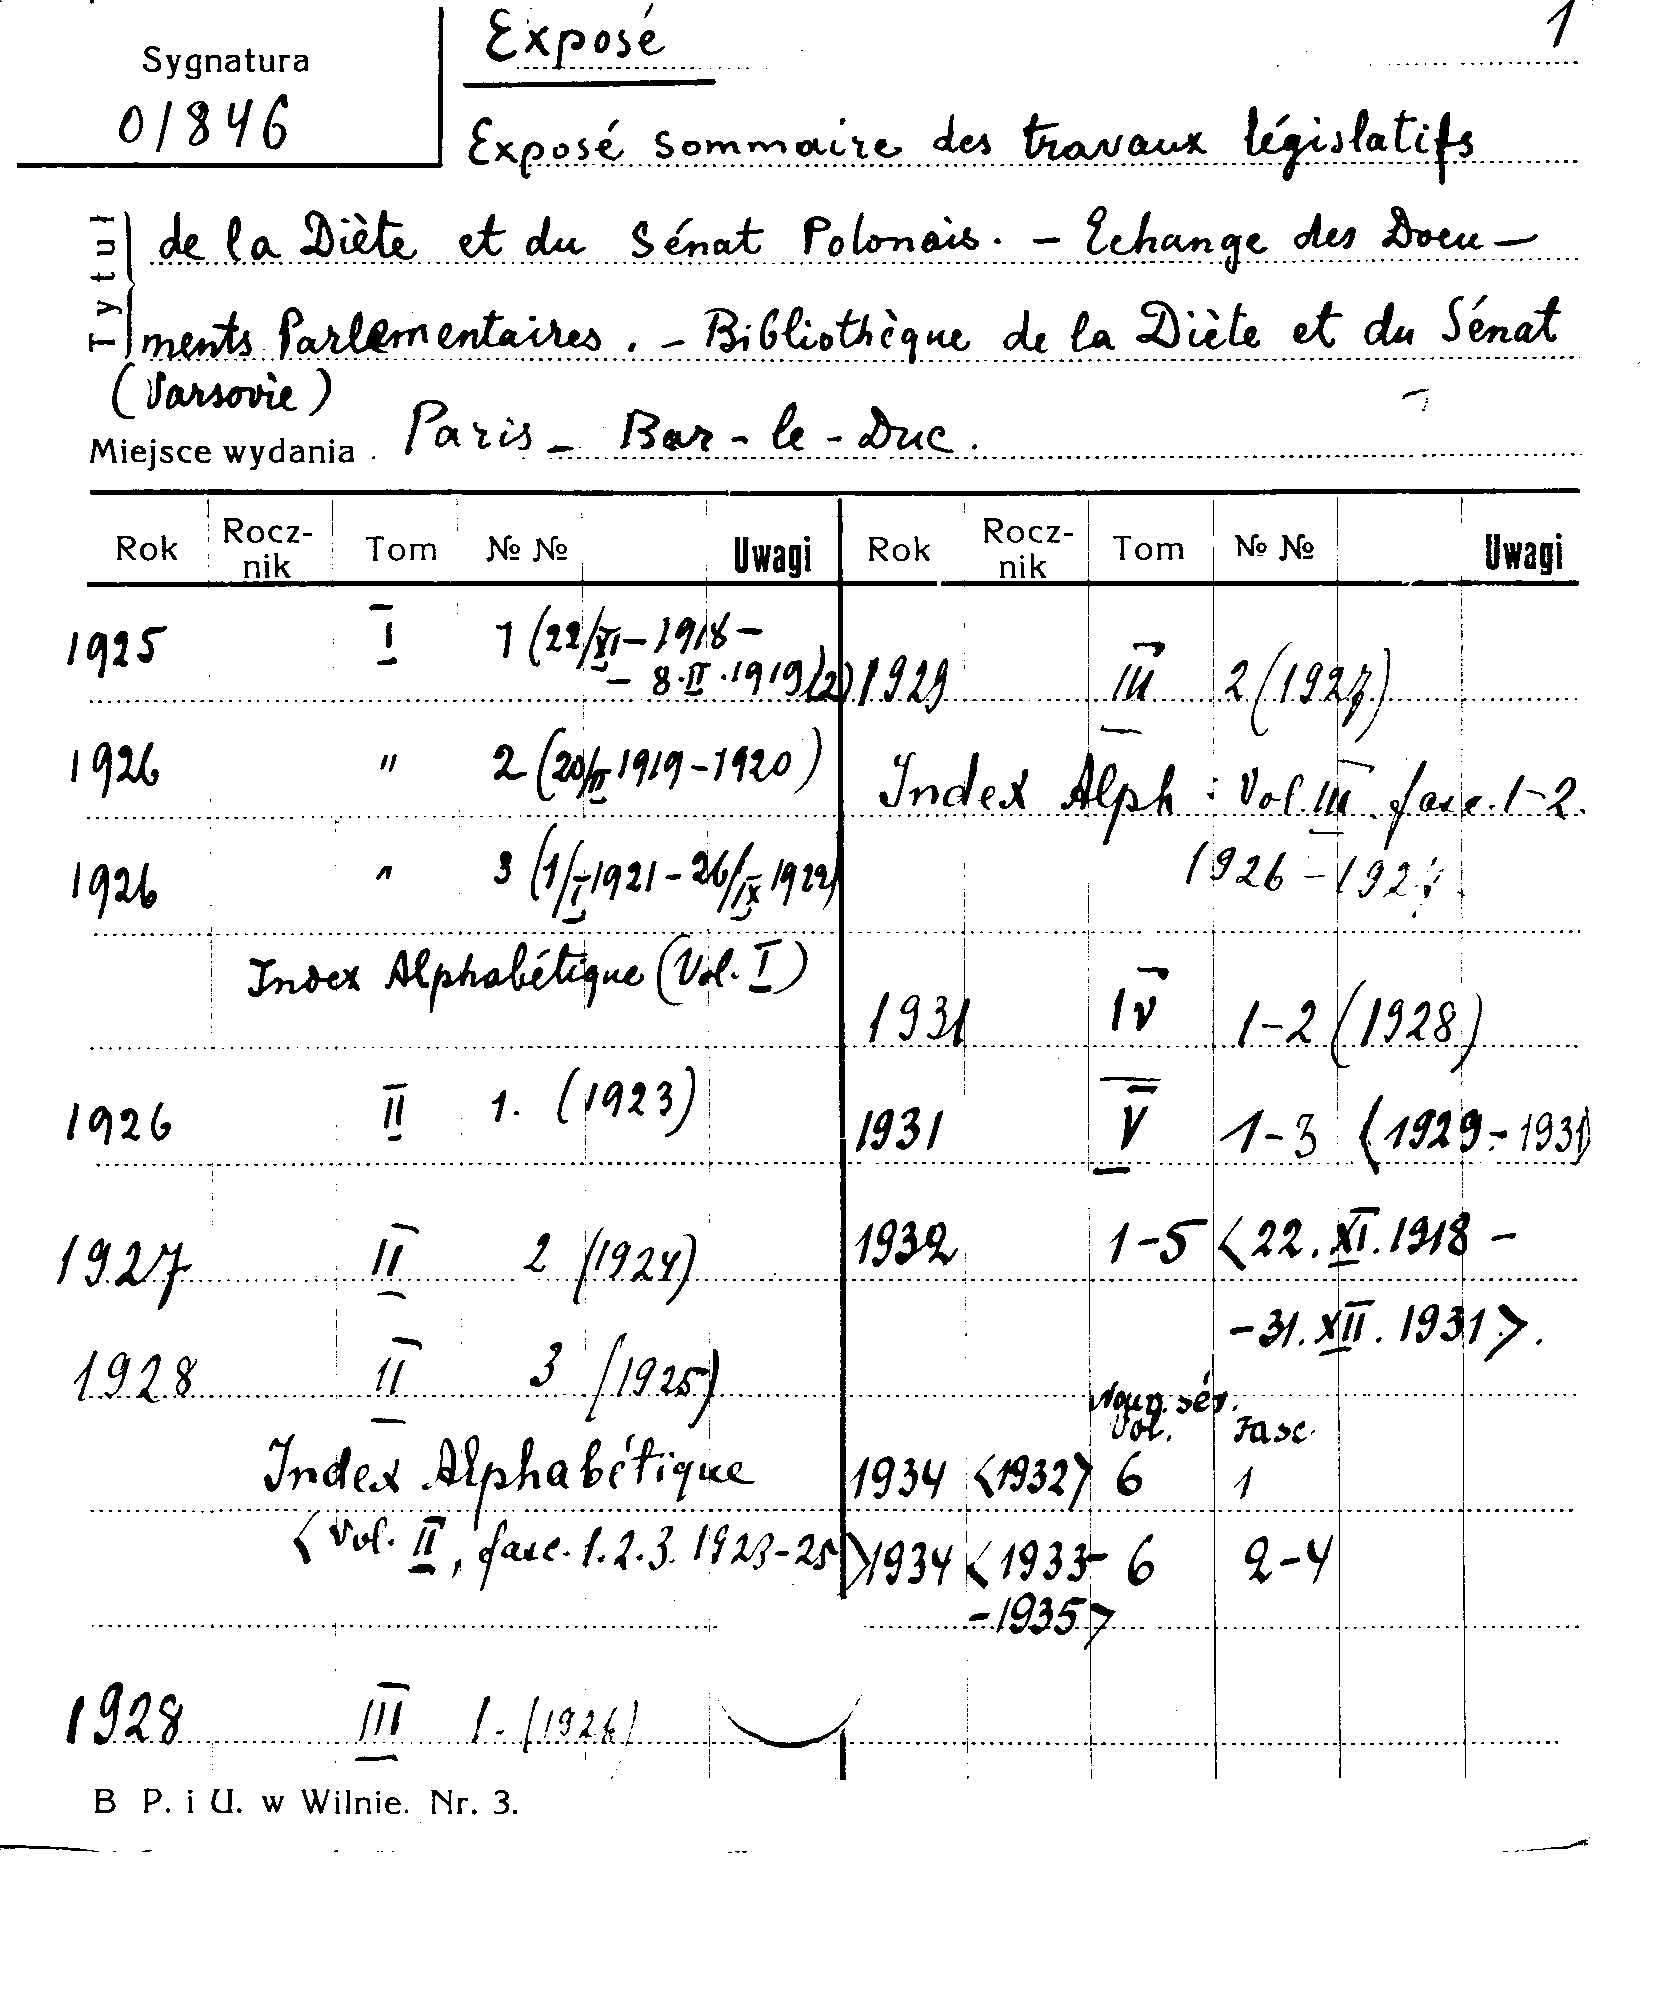 Exposé
1
Sygnatura
01846
Exposé sommaire des travaux législatifs
Tytuł
de la Diète et du Sénat Polonais. – Echange des Docu–
ments Parlementaires. – Bibliothèque de la Diète et du Sénat
(Varsovie)
Miejsce wydania. Paris – Bar-le-Duc.
Rok Rocz-nik Tom № № Uwagi Rok Rocz-nik Tom № № Uwagi
1925 I 1 (22/XI – 1918 –
– 8.II.1919 (2)
1926 " 2 (20/II 1919-1920)
1926 " 3 (1/I 1921 - 26/IX 1922)
Index Alphabétique (Vol. I)
1926 II 1. (1923)
1927 II 2 (1924)
1928 II 3 (1925)
Index Alphabétique
<Vol. II, fasc. 1.2.3. 1923-25>
1928 III 1. (1926)
1929 III 2 (1927)
Index Alph : Vol. III. fasc. 1-2.
1926-1927.
1931 IV 1-2 (1928)
1931 V 1-3 (1929-1931)
1932 1-5 <22.XI.1918 –
–31.XII.1931>.
sér.
Vol. Fasc.
1934 <1932> 6 1
1934 <1933- 6 2-4
-1935>
B P. i U. w Wilnie. Nr. 3.